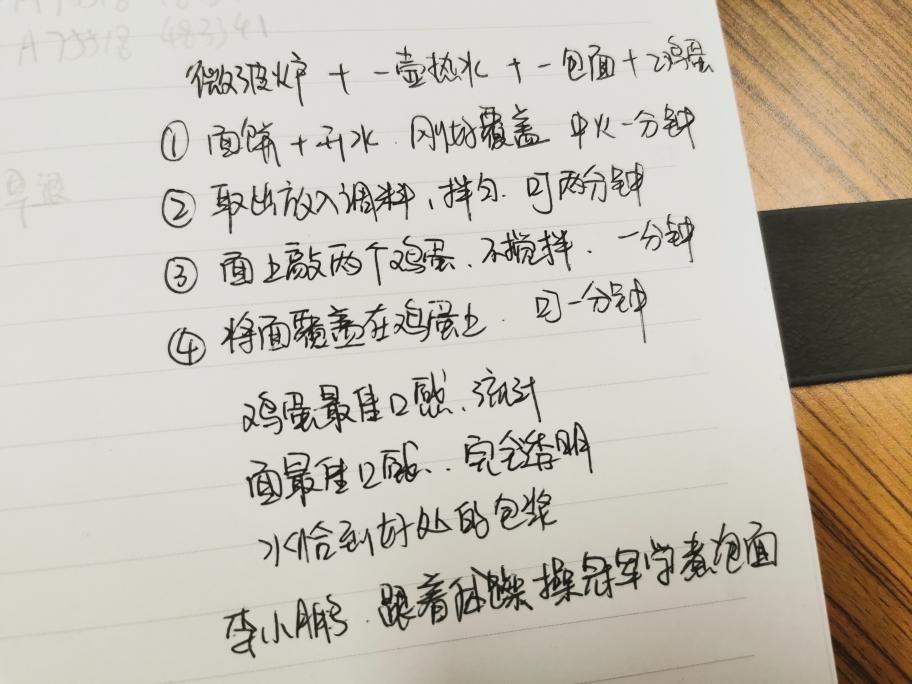 A75518 483341
微波炉 + 一壶热水 + 一包面 + 2鸡蛋
① 面饼 + 开水. 刚好覆盖 中火一分钟
② 取出放入调料、拌匀. 叮两分钟
③ 面上敲两个鸡蛋、不搅拌. 一分钟
④ 将面覆盖在鸡蛋上. 叮一分钟
鸡蛋最佳口感、流汁
面最佳口感.. 完全透明
水恰到好处的包浆
李小鹏. 跟着体操冠军学煮泡面